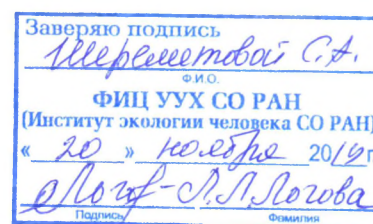 Заверяю подпись
Шереметовой С.А.
Ф.И.О.
ФИЦ УУХ СО РАН
(Институт экологии человека СО РАН)
« 20 » ноября 2019 г
Логова
Подпись Фамилия